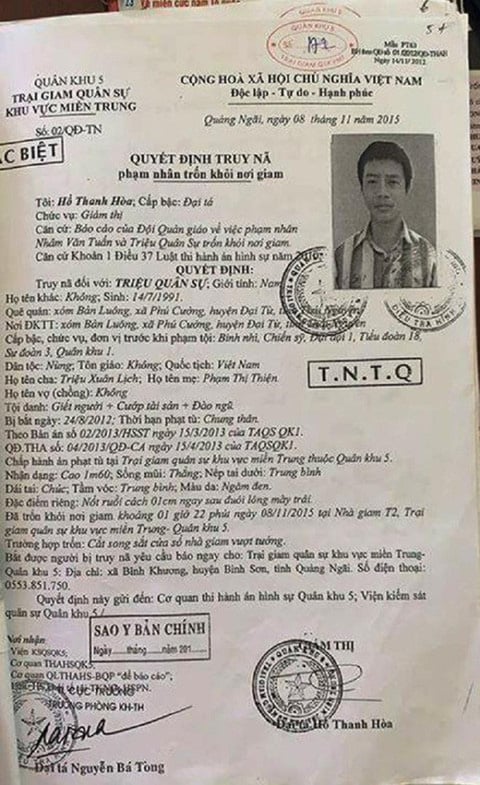 QUÂN KHU 5
SỐ 172
TRẠI GIAM QUÂN SỰ
Mẫu PT03
Ngày 14/11/2012
QUÂN KHU 5
TRẠI GIAM QUÂN SỰ
KHU VỰC MIỀN TRUNG
Số: 02/QĐ-TN
CỘNG HOÀ XÃ HỘI CHỦ NGHĨA VIỆT NAM
Độc lập - Tự do - Hạnh phúc
Quảng Ngãi, ngày 08 tháng 11 năm 2015
ẶC BIỆT
QUYẾT ĐỊNH TRUY NÃ
phạm nhân trốn khỏi nơi giam
Tôi: Hồ Thanh Hòa; Cấp bậc: Đại tá
Chức vụ: Giám thị
Căn cứ: Báo cáo của Đội Quản giáo về việc phạm nhân
Nhâm Văn Tuấn và Triệu Quân Sự trốn khỏi nơi giam.
Căn cứ Khoản 1 Điều 37 Luật thi hành án hình sự năm
QUYẾT ĐỊNH:
Truy nã đối với: TRIỆU QUÂN SỰ; Giới tính: Nam
Họ tên khác: Không; Sinh: 14/7/1991.
Quê quán: xóm Bàn Luông, xã Phú Cường, huyện Đại Từ,
Nơi ĐKTT: xóm Bàn Luông, xã Phú Cường, huyện Đại Từ,
Cấp bậc, chức vụ, đơn vị trước khi phạm tội: Binh nhì, Chiến sỹ, Đại đội 1, Tiểu đoàn 18,
Sư đoàn 3, Quân khu 1.
Dân tộc: Nùng; Tôn giáo: Không; Quốc tịch: Việt Nam
Họ tên cha: Triệu Xuân Lịch; Họ tên mẹ: Phạm Thị Thiện.
Họ tên vợ (chồng): Không
Tội danh: Giết người + Cướp tài sản + Đào ngũ.
Bị bắt ngày: 24/8/2012; Thời hạn phạt tù: Chung thân.
Theo Bản án số 02/2013/HSST ngày 15/3/2013 của TAQS QK1.
QĐ.THA số: 04/2013/QĐ-CA ngày 15/4/2013 của TAQSQK1.
Chấp hành án phạt tù tại Trại giam quân sự khu vực miền Trung thuộc Quân khu 5.
Nhận dạng: Cao 1m60; Sống mũi: Thẳng; Nếp tai dưới: Trung bình
Dái tai: Chúc; Tầm vóc: Trung bình; Màu da: Ngăm đen.
Đặc điểm riêng: Nốt ruồi cách 01cm ngay sau đuôi lông mày trái.
Đã trốn khỏi nơi giam khoảng 01 giờ 22 phút ngày 08/11/2015 tại Nhà giam T2, Trại
giam quân sự khu vực miền Trung- Quân khu 5.
Trường hợp trốn: Cắt song sắt cửa sổ nhà giam vượt tường.
Bắt được người bị truy nã yêu cầu báo ngay cho: Trại giam quân sự khu vực miền Trung-
Quân khu 5; Địa chỉ: xã Bình Khương, huyện Bình Sơn, tỉnh Quảng Ngãi. Số điện thoại:
0553.851.750.
Quyết định này gửi đến: Cơ quan thi hành án hình sự Quân khu 5; Viện kiểm sát
quân sự Quân khu 5./
T.N.T.Q
SAO Y BẢN CHÍNH
Ngày....tháng....năm 201
Nơi nhận:
Viện KSQSQK5;
Cơ quan THAHSQK5;
Cơ quan QLTHAHS-BQP "để báo cáo";
CỤC TRƯỞNG
TRƯỞNG PHÒNG KH-TH
Đại tá Nguyễn Bá Tòng
GIÁM THỊ
Đại tá Hồ Thanh Hòa